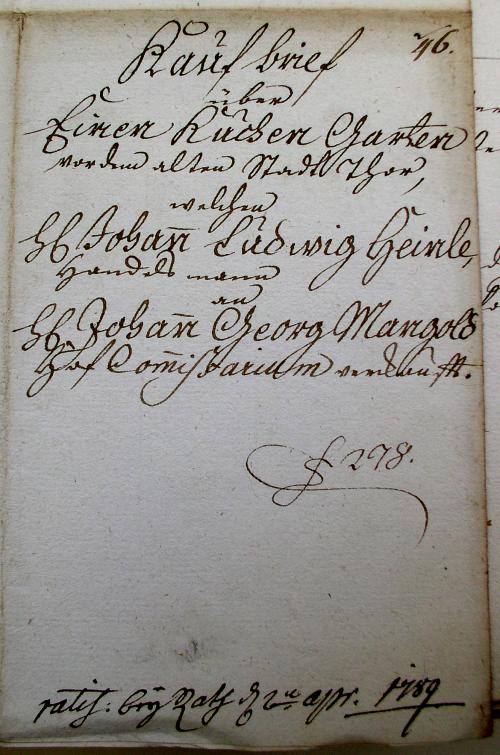 46.
Kauf brief
über
Einen Küchen Garten
vor dem alten Stadt Thor,
welchen
H. Johan̅ Ludwig Heinle,
Handels mann
an
H. Johan̅ Georg Mangold
Hof Com̅issarium verkaufft.
f 278.
ratif: bey Rath d 2 apr. 1789